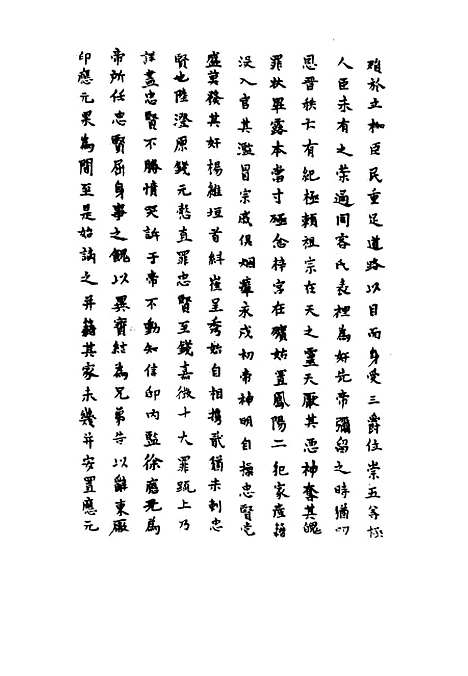 殞於立枷臣民重足道路以目而身受三爵位崇五等極
人臣未有之榮過同客氏表裡為奸先帝彌留之時猶叨
恩晋秩亡有紀極賴祖宗在天之靈天厭其惡神奪其魄
罪狀畢露本當寸磔念梓宮在殯姑置鳳陽二犯家產籍
沒入官其濫冒宗戚俱烟瘴永戍初帝神明自操忠賢党
盛莫發其奸楊維垣首糾崔呈秀始自相携貳猶未刺忠
賢也陸澄原錢元慤直罪忠賢至錢嘉徵十大罪疏上乃
詳盡忠賢不勝憤哭訴于帝不動知信邸內監徐應元為
帝所任忠賢屈身事之餽以異寶結為兄弟告以辭東厰
印應元果為間至是始謫之并籍其家未幾并安置應元